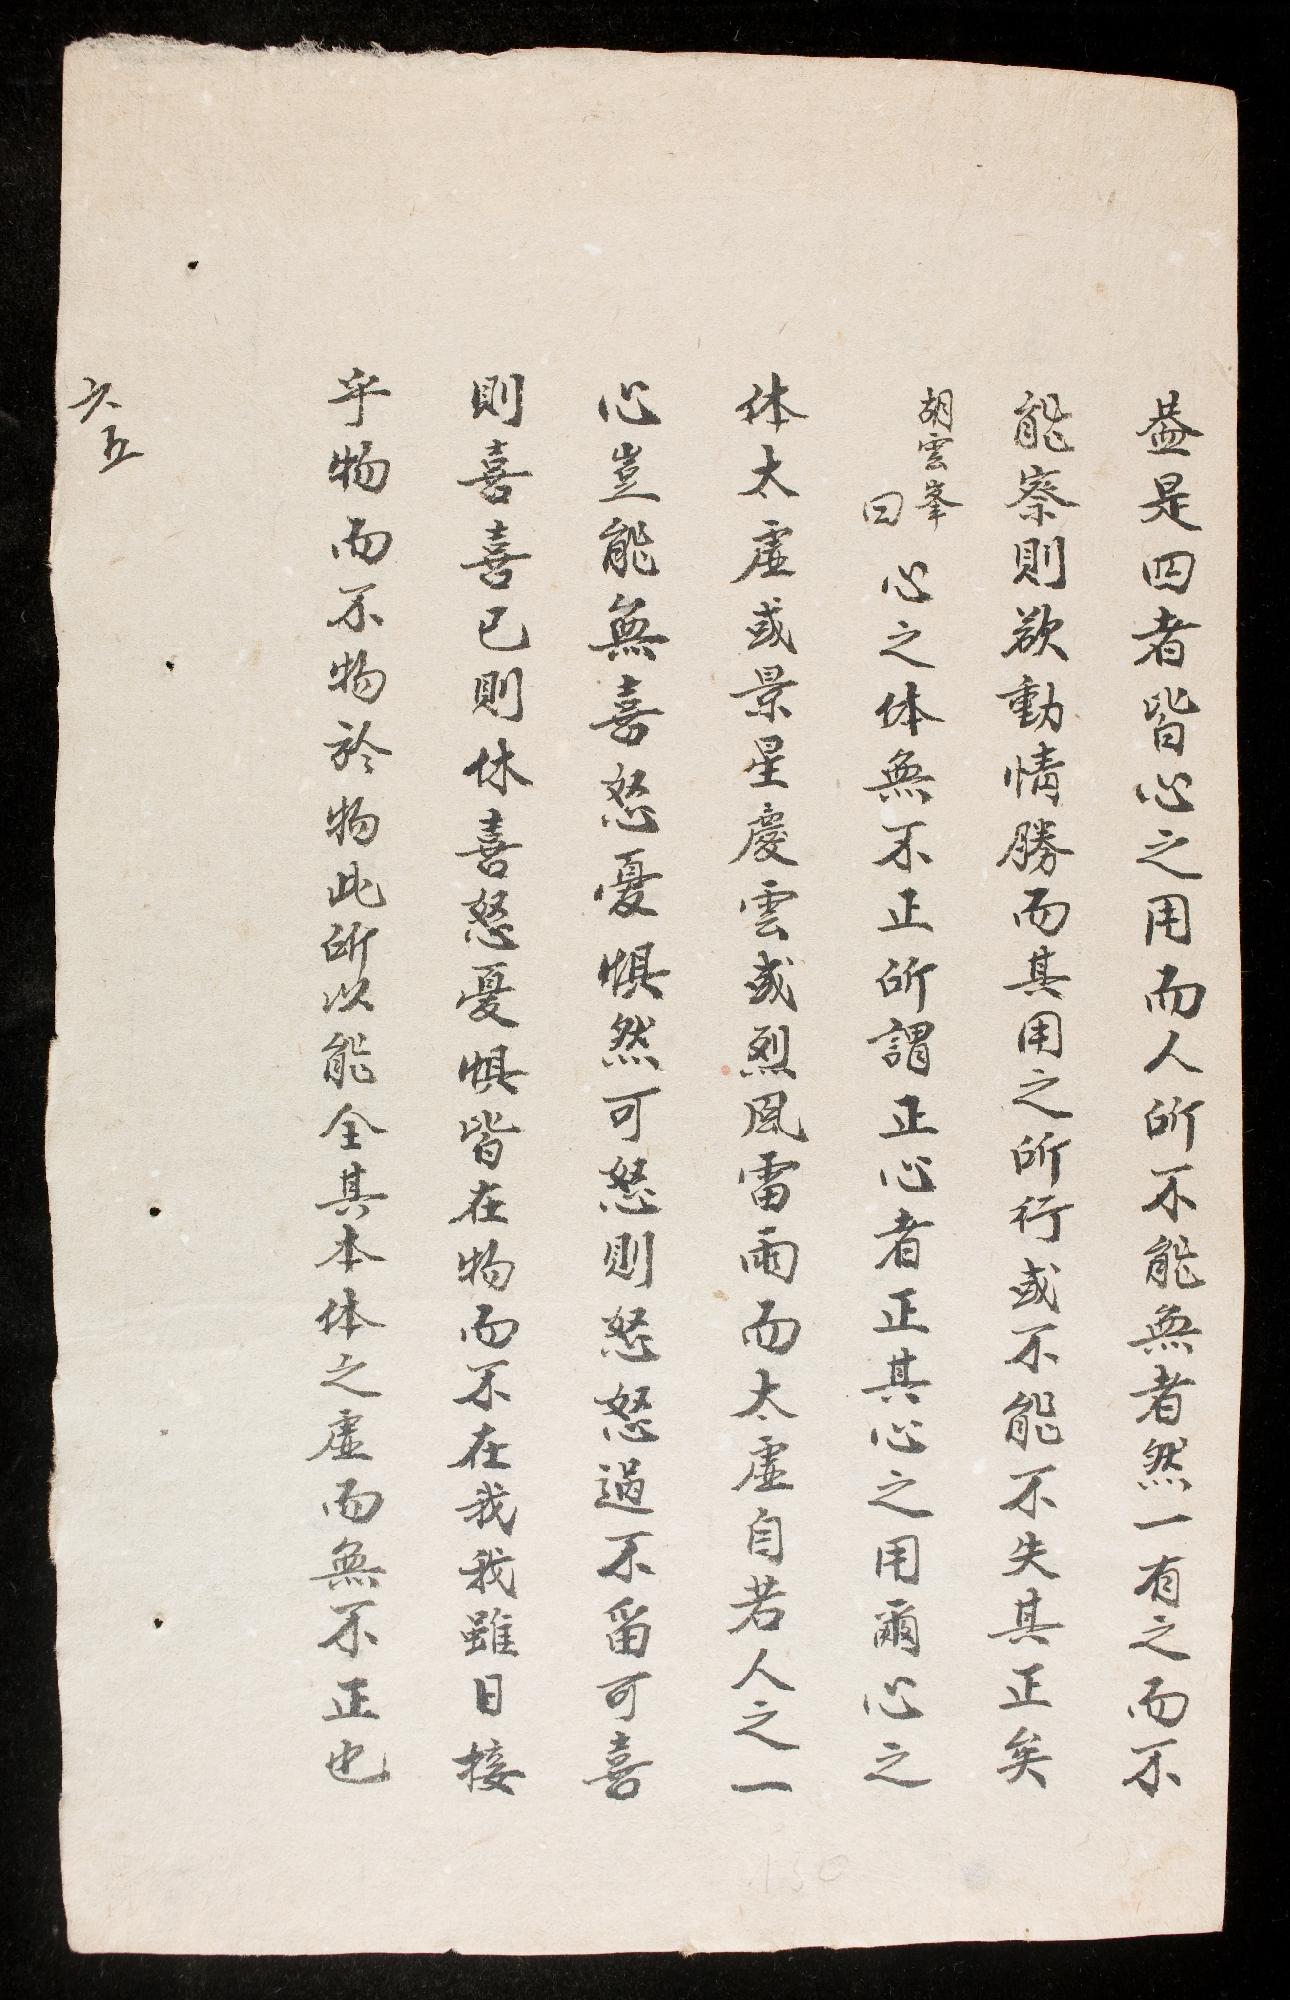 益是四者皆心之用而人所不能無者然一有之而不
能察則欲動情勝而其用之所行或不能不失其正矣
胡雲峯
曰
心之体無不正所謂正心者正其心之用爾心之
体太虛或景星慶雲或烈風雷雨而太虛自若人之一
心豈能無喜怒憂惧然可怒則怒怒過不留可喜
則喜喜已則休喜怒憂惧皆在物而不在我我雖日接
乎物而不物於物此所以能全其本体之虛而無不正也
六五
130